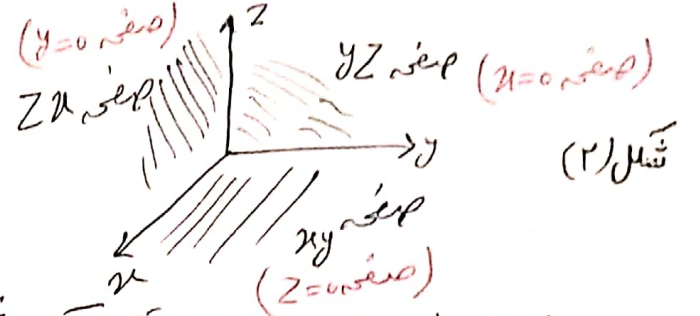 z
(صفحه y=0)
صفحه zx
صفحه yz
(صفحه x=0)
y
شکل (۲)
صفحه xy
x
(صفحه z=0)